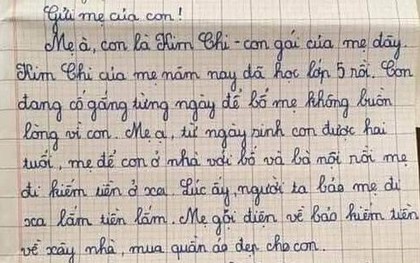 Gửi mẹ của con!
Mẹ à, con là Kim Chi - con gái của mẹ đây.
Kim Chi của mẹ năm nay đã học lớp 5 rồi. Con
đang cố gắng từng ngày để bố mẹ không buồn
lòng vì con. Mẹ ạ, từ ngày sinh con được hai
tuổi, mẹ để con ở nhà với bố và bà nội rồi mẹ
đi kiếm tiền ở xa. Lúc ấy, người ta bảo mẹ đi
xa lắm tiền lắm. Mẹ gọi điện về bảo kiếm tiền
về xây nhà, mua quần áo đẹp cho con.